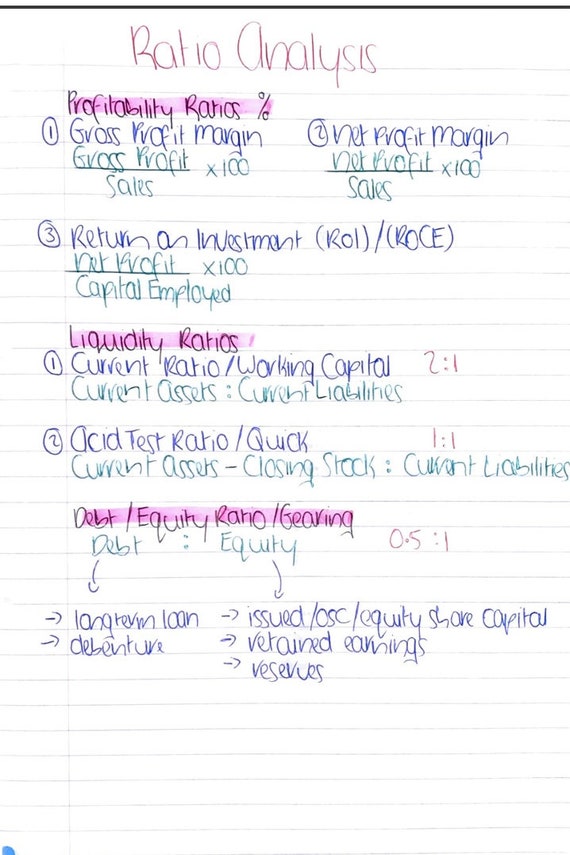 Ratio Analysis
Profitability Ratios %
① Gross Profit Margin ② Net Profit Margin
Gross Profit x100 Net Profit x100
Sales Sales
③ Return on Investment (ROI)/(ROCE)
Net Profit x100
Capital Employed
Liquidity Ratios
① Current Ratio/Working Capital 2:1
Current Assets : Current Liabilities
② Acid Test Ratio/Quick 1:1
Current Assets - Closing Stock : Current Liabilities
Debt/Equity Ratio/Gearing
Debt : Equity 0.5:1
→ long term loan → issued/osc/equity share capital
→ debenture → retained earnings
→ reserves